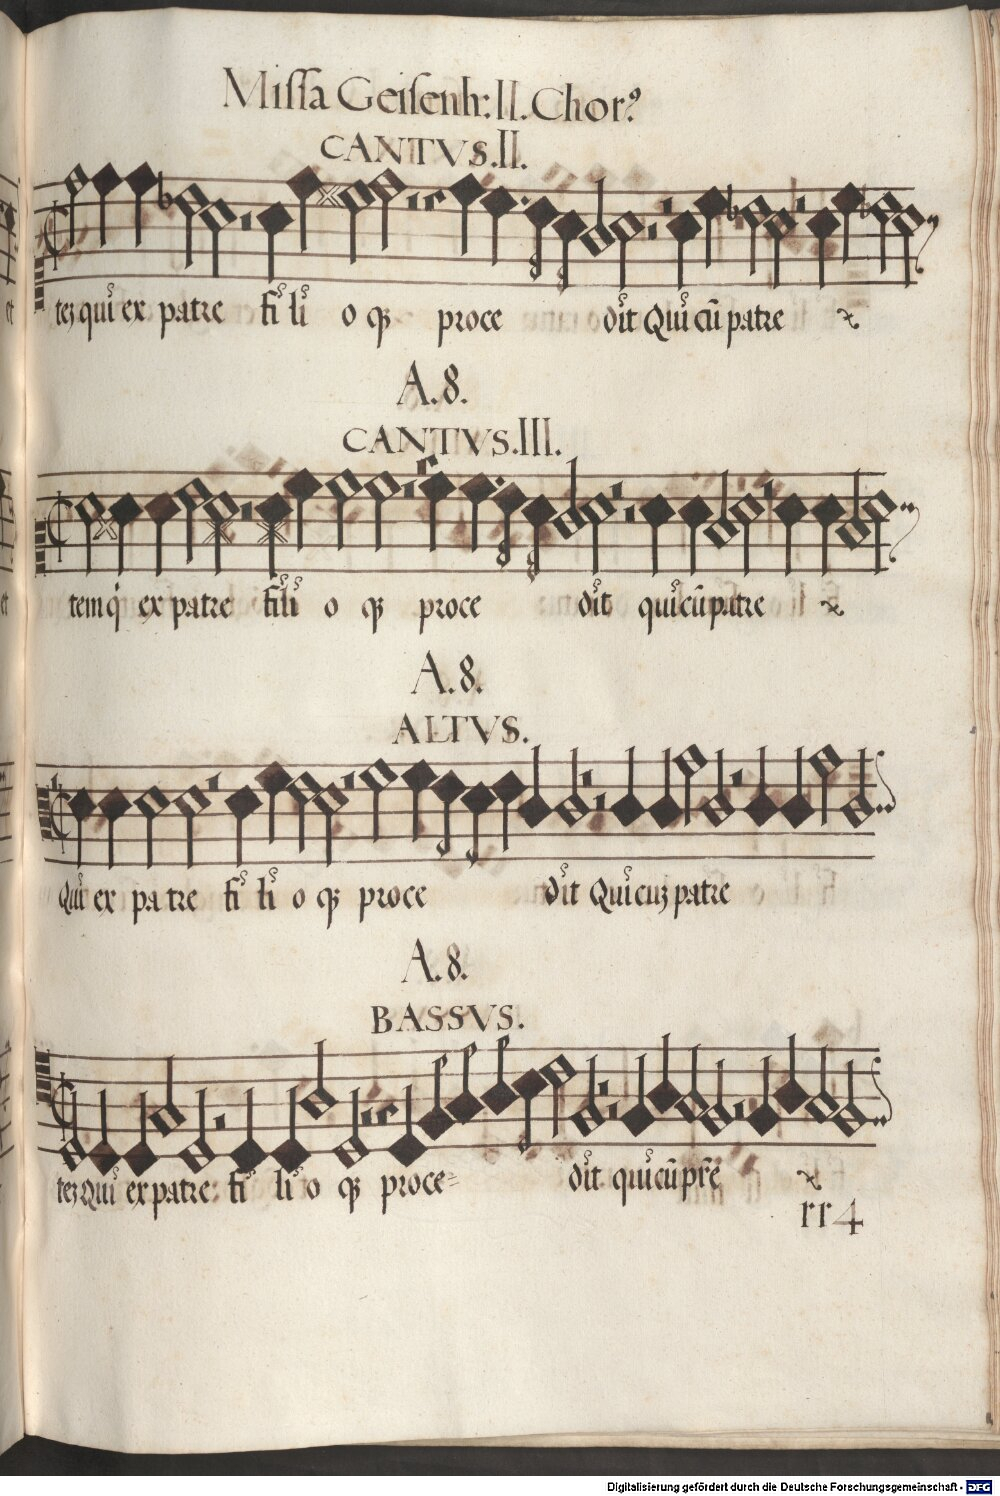 Missa Geisenh: II. Chor9
CANTVS. II.
tez qui ex patre fi li o qz proce dit Qui cū patre
A. 8.
CANTVS. III.
tem q ex patre fi li o qz proce dit qui cū patre
A. 8.
ALTVS.
Qui ex pa tre fi li o qz proce dit Qui cuz patre
A. 8.
BASSVS.
tez Qui ex patre fi li o qz proce= dit qui cū pr̄e
rr4
Digitalisierung gefördert durch die Deutsche Forschungsgemeinschaft - DFG